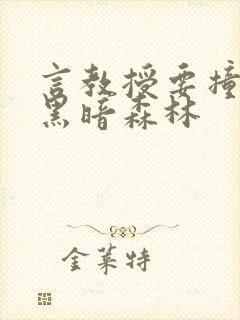 言教授要撞
黑暗森林
金莱特